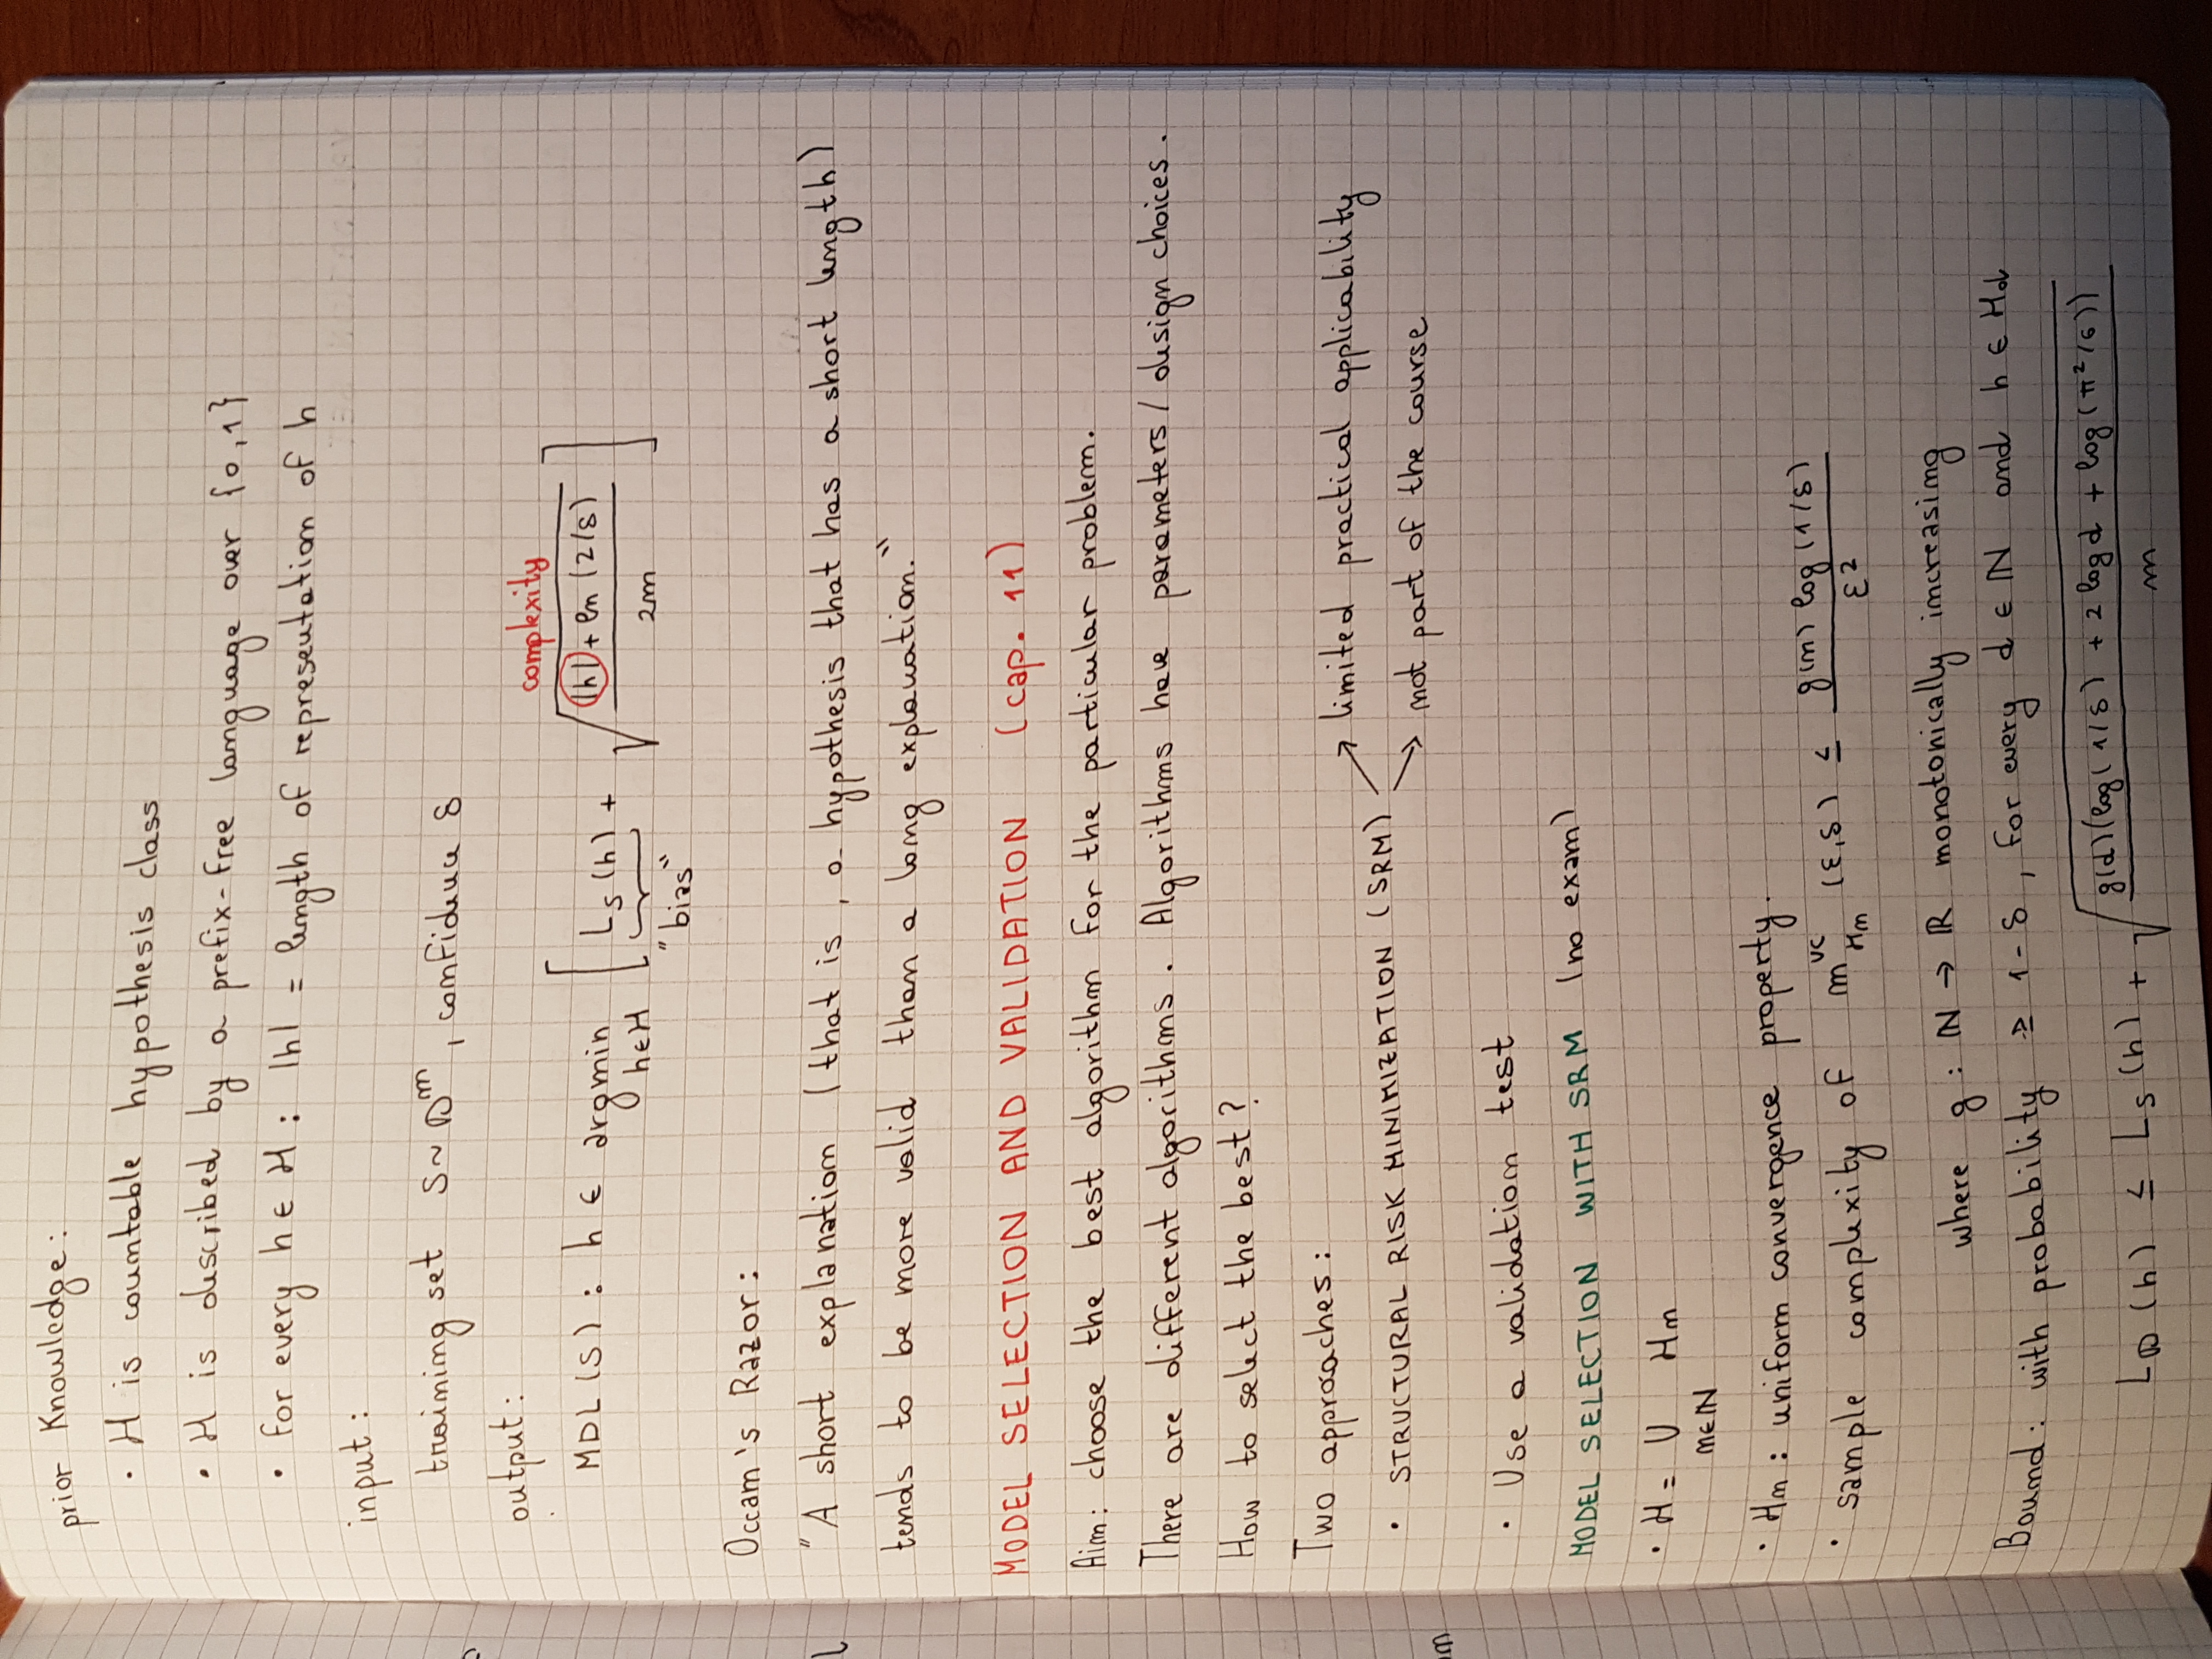 prior Knowledge:
• H is countable hypothesis class
• H is described by a prefix-free language over {0,1}
• for every h ∈ H : |h| = length of representation of h
input:
training set S ~ D^m, confidence δ
output:
complexity
MDL(S) : h ∈ argmin_{h∈H} [ L_S(h) + √( (|h| + ln(2/δ)) / 2m ) ]
"bias"
Occam's Razor:
"A short explanation (that is, a hypothesis that has a short length)
tends to be more valid than a long explanation."
MODEL SELECTION AND VALIDATION (cap. 11)
Aim: choose the best algorithm for the particular problem.
There are different algorithms. Algorithms have parameters/design choices.
How to select the best?
Two approaches:
• STRUCTURAL RISK MINIMIZATION (SRM) ↗ limited practical applicability
↘ not part of the course
• Use a validation test
MODEL SELECTION WITH SRM (no exam)
• H = ∪_{n∈ℕ} H_n
• H_n : uniform convergence property.
• sample complexity of m^{VC}_{H_n} (ε,δ) ≤ g(n) log(1/δ) / ε²
where g : ℕ → ℝ monotonically increasing
Bound: with probability ≥ 1-δ, for every d ∈ ℕ and h ∈ H_d
L_D(h) ≤ L_S(h) + √( g(d)(log(1/δ) + 2 log d + log(π²/6)) / m )